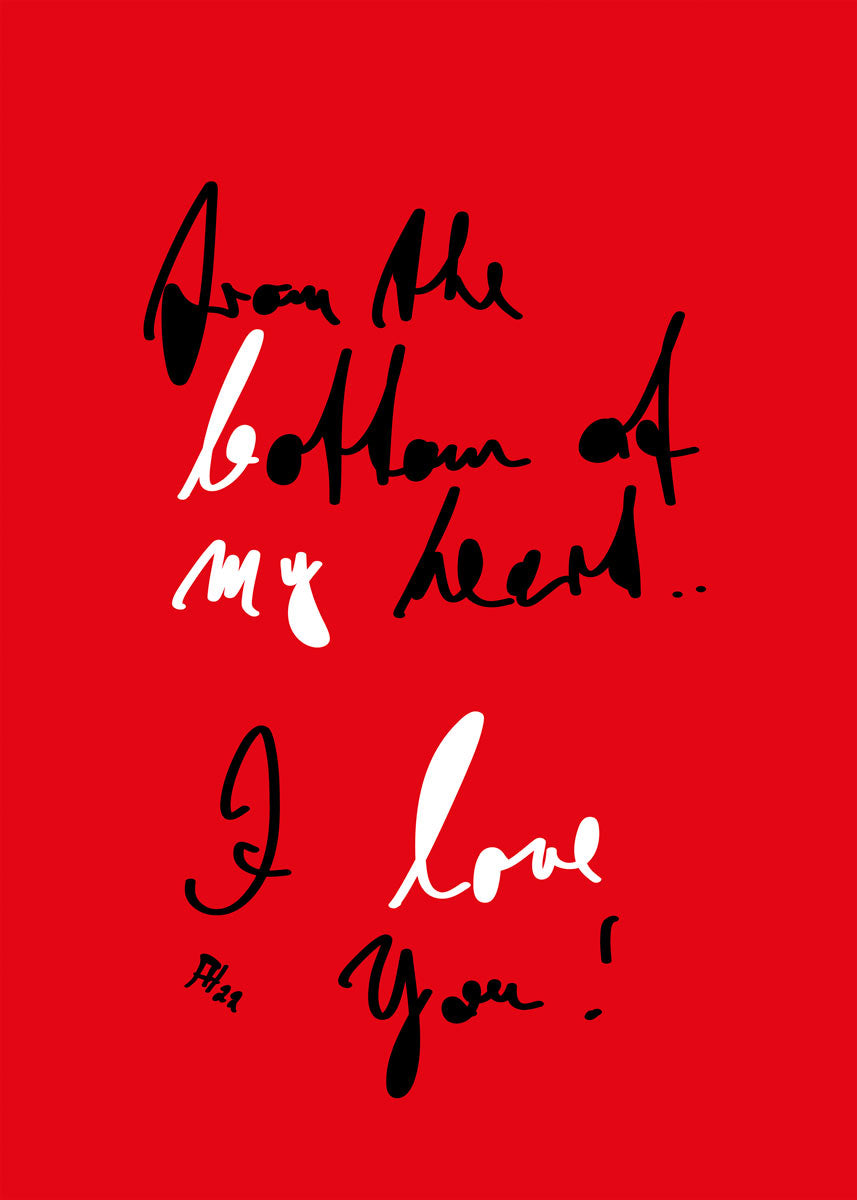 from the
bottom of
my heart..
I love
you!
AH22